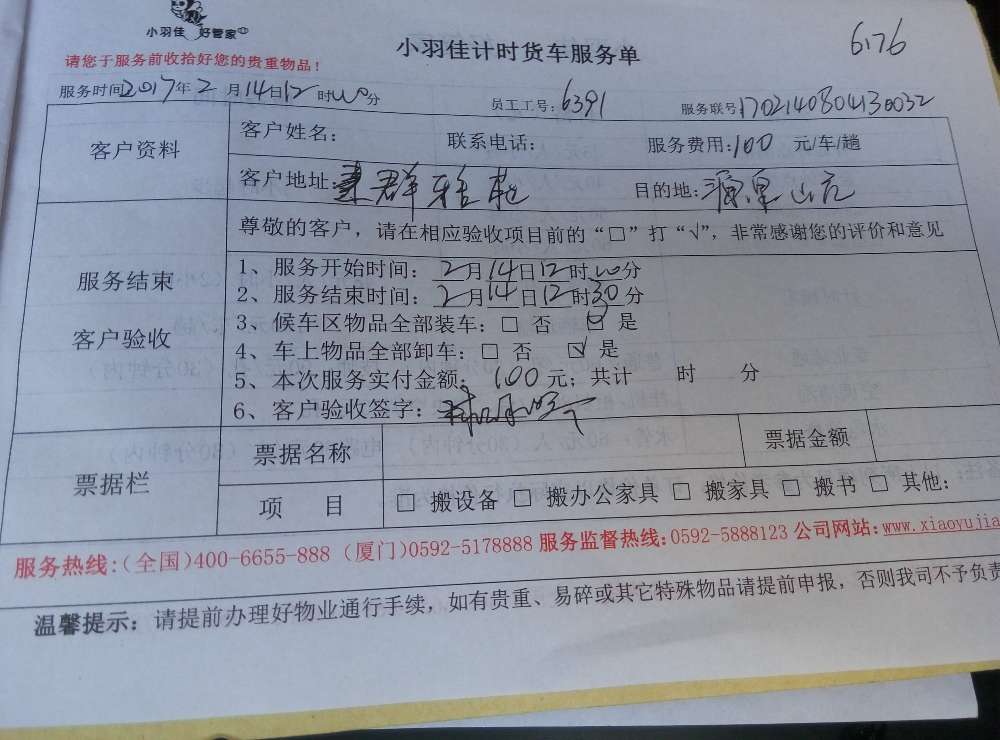 小羽佳 好管家
小羽佳计时货车服务单
6176
请您于服务前收拾好您的贵重物品！
服务时间2017年2月14日12时00分 员工工号：6391 服务联号170214080413 0032
客户资料
客户姓名： 联系电话： 服务费用：100 元/车/趟
客户地址： 群雅苑 目的地：
服务结束
客户验收
尊敬的客户，请在相应验收项目前的“□”打“√”，非常感谢您的评价和意见
1、服务开始时间：2月14日12时00分
2、服务结束时间：2月14日12时30分
3、候车区物品全部装车：□ 否 ☑ 是
4、车上物品全部卸车：□ 否 ☑ 是
5、本次服务实付金额：100元；共计 时 分
6、客户验收签字：
票据栏
票据名称 票据金额
项 目 □ 搬设备 □ 搬办公家具 □ 搬家具 □ 搬书 □ 其他：
服务热线：（全国）400-6655-888（厦门）0592-5178888 服务监督热线：0592-5888123 公司网站：www.xiaoyujia
温馨提示：请提前办理好物业通行手续，如有贵重、易碎或其它特殊物品请提前申报，否则我司不予负责